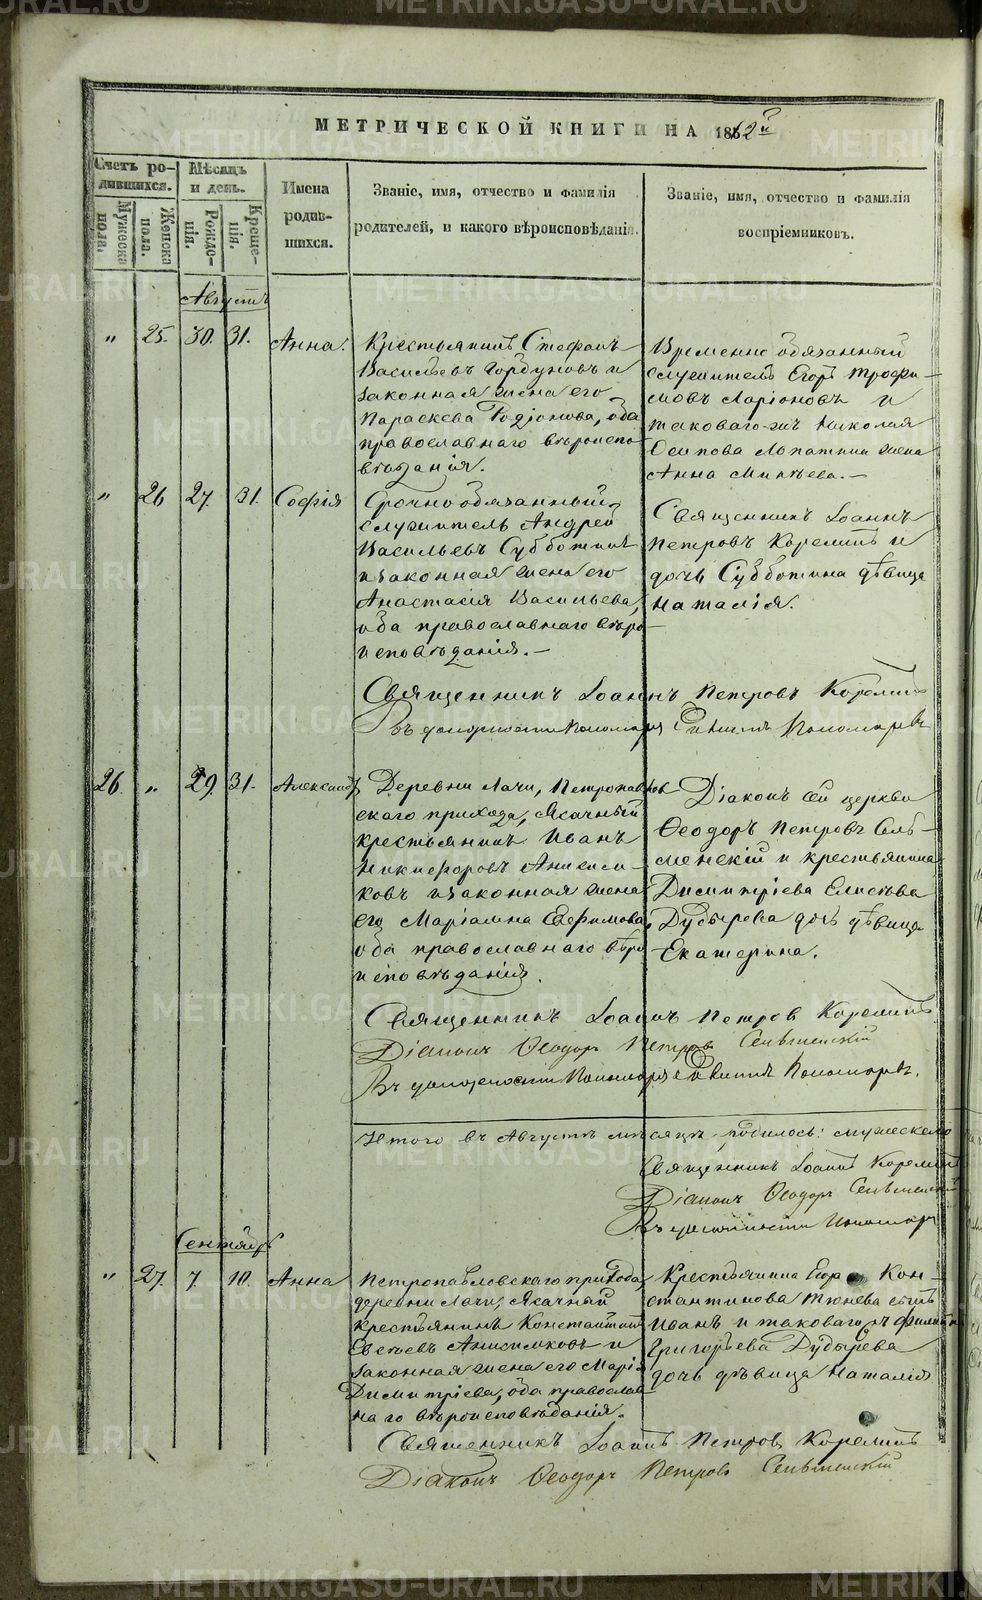 МЕТРИЧЕСКОЙ КНИГИ НА 1862й
Счетъ родившихся.
Мужеска пола.
Женска пола.
Мѣсяцъ и день.
Рожденія.
Крещенія.
Имена родившихся.
Званіе, имя, отчество и фамилія
родителей, и какого вѣроисповѣданія.
Званіе, имя, отчество и фамилія
воспріемниковъ.
Августъ
" 25. 30. 31. Анна.
Крестьянинъ Стефанъ
Васильевъ Горбуновъ и
законная жена его
Параскева Родіонова, оба
православнаго вѣроиспо-
вѣданія.
Временно обязанный
служитель Егоръ Трофи-
мовъ Ларіоновъ и
таковаго-жъ Николая
Осипова Лопатина жена
Анна Минѣева.-
" 26 27. 31. Софія
Срочно обязанный
служитель Андрей
Васильевъ Субботинъ
и законная жена его
Анастасія Васильева,
оба православнаго вѣро
исповѣданія.-
Священникъ Іоаннъ
Петровъ Корелинъ и
дочь Субботина дѣвица
Наталія.
Священникъ Іоаннъ Петровъ Корелинъ
Въ должности Пономаря Пономаревъ
26. " 29. 31. Александръ
Деревни Лачи, Петропавлов
скаго прихода, Ясачный
крестьянинъ Иванъ
Никифоровъ Анисим-
ковъ и законная жена
его Маріамна Евфимова,
оба православнаго вѣро
исповѣданія.
Діаконъ сей церкви
Ѳеодоръ Петровъ Сель-
менскій и крестьянина
Димитріева Елисѣева
Дубырева дочь дѣвица
Екатерина.
Священникъ Іоаннъ Петровъ Корелинъ
Діаконъ Ѳеодоръ Петровъ Сельменскій
Въ должности Пономаря Пономаревъ.
Итого въ Августѣ мѣсяцѣ родилось: мужескаго
Священникъ Іоаннъ Корелинъ
Діаконъ Ѳеодоръ Сельменскій
Въ должности Пономаря
Сентябрь
" 27. 7 10. Анна
Петропавловскаго прихода,
деревни Лачи, Ясачный
крестьянинъ Константинъ
Евсѣевъ Анисимковъ и
законная жена его Марія
Димитріева, оба православ
наго вѣроисповѣданія.
Крестьянина Егора Кон-
стантинова Тюнева сынъ
Иванъ и таковаго жъ Филиппа
Григорьева Дубырева
дочь дѣвица Наталія
Священникъ Іоаннъ Петровъ Корелинъ
Діаконъ Ѳеодоръ Петровъ Сельменскій
METRIKI.GASO-URAL.RU